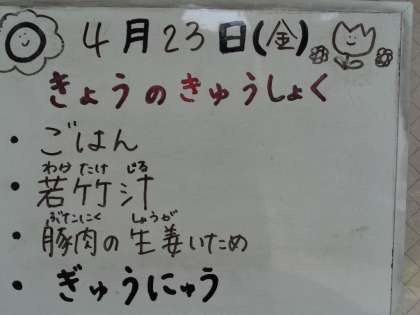 4月23日(金)
きょうのきゅうしょく
・ごはん
わか たけ じる
・若竹汁
ぶたにく しょうが
・豚肉の生姜いため
・ぎゅうにゅう